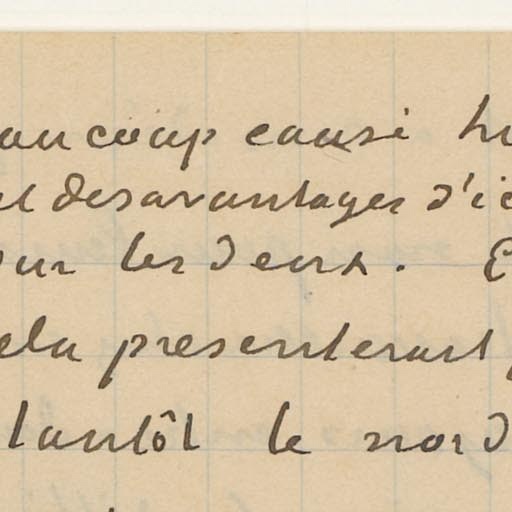 aucoup causé
et desavantages d'i
sur les deux. E
ela presenterait
tantôt le nord